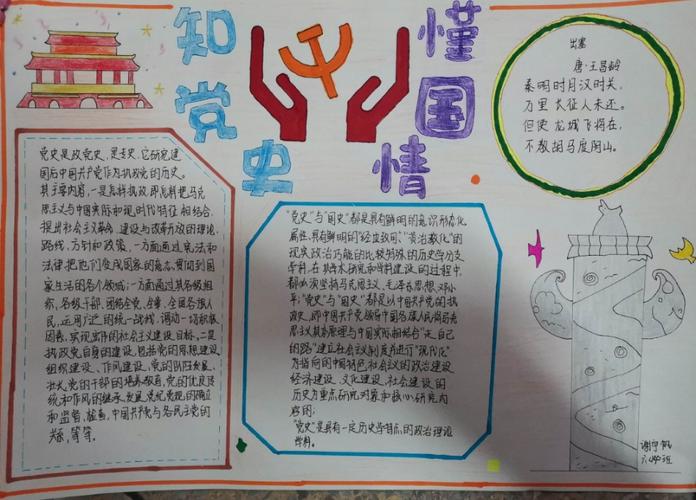 知党史
懂国情
党史是政党史,是专史,它研究建
国后中国共产党作为执政党的历史。
其主要内容,一是怎样执政,即怎样把马克
思主义与中国实际和现时代特征相结合,
提出社会主义革命、建设与改革开放的理论、
路线、方针和政策,一方面通过宪法和
法律把他们变成国家的意志,贯彻到国
家生活的各个领域;一方面通过其各级组
织,各级干部,团结全党、全军、全国各族人
民,运用广泛的统一战线,调动一切积极
因素,实现当中的社会主义建设目标。二是
执政党自身的建设,包括党的思想建设
组织建设、作风建设,党的队伍发展
壮大,党的干部的培养教育,党的优良传
统和作风的继承、发展,党纪党规的确立
和监督、检查,中国共产党与各民主党的
关系,等等。
"党史"与"国史"都是具有鲜明的意识形态化
属性,具有鲜明的"经世致用"、"资治教化"的
现实政治功能的比较特殊的历史学分支
学科,在其学术研究和学科建设的过程中
都必须坚持马克思主义、毛泽东思想、邓小
平;"党史"与"国史"都是以中国共产党的执
政史,即中国共产党领导中国各族人民将马克
思主义基本原理与中国实际相结合"走自己
的路"建立社会主义制度并进行"现代化"
为指向的中国特色社会主义的政治建设
经济建设、文化建设、社会建设的
历史为重点研究对象和核心研究内
容的;
"党史"是具有一定历史学特点的政治理论
学科。
出塞
唐·王昌龄
秦明时月汉时关,
万里长征人未还。
但使龙城飞将在,
不教胡马度阴山。